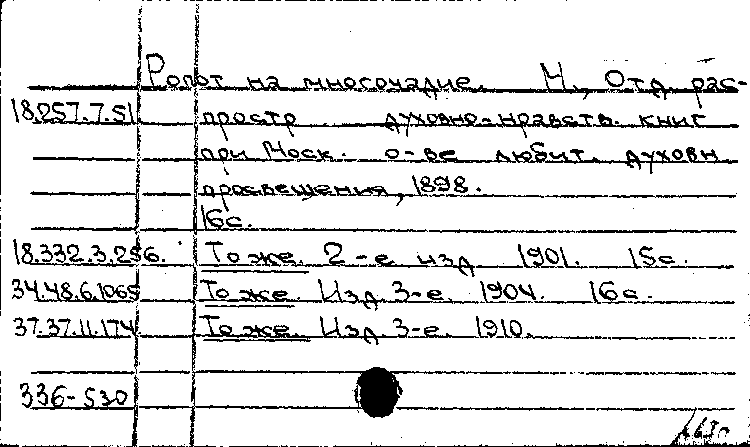 Ропот на многочадие. М., Отд. рас-
18.257.7.51 простр духовно-нравств. книг
при Моск. о-ве любит. духовн.
просвещения, 1898.
16с.
18.332.3.256. То же. 2-е изд 1901. 15с.
34.48.6.1065 То же. Изд. 3-е. 1904. 16с.
37.37.11.174 То же. Изд. 3-е. 1910.
336-530